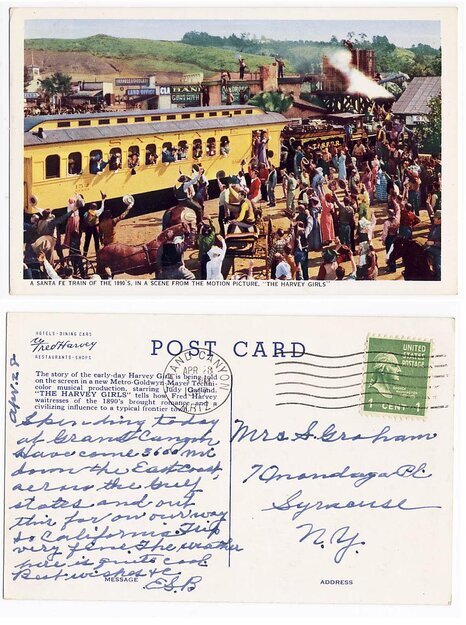 LAND OFFICE
A SANTA FE TRAIN OF THE 1890'S, IN A SCENE FROM THE MOTION PICTURE, "THE HARVEY GIRLS"
HOTELS · DINING CARS
Fred Harvey
RESTAURANTS · SHOPS
POST CARD
The story of the early-day Harvey Girls is being told
on the screen in a new Metro-Goldwyn-Mayer Techni-
color musical production, starring Judy Garland.
"THE HARVEY GIRLS" tells how Fred Harvey
waitresses of the 1890's brought romance and
civilizing influence to a typical frontier town.
GRAND CANYON
APR 28
ARIZ.
UNITED
STATES
POSTAGE
1 CENT 1
Apr. 28
Spending today
at Grand Canyon
Have come 3600 mi
down the East Coast,
across the Gulf
states and out
this far on our way
to California. Trip
very fine. The weather
here is quite cool
Best wishes &c
E.S.B
MESSAGE
Mrs S. Graham
7 Onondaga Pl
Syracuse
N.Y.
ADDRESS